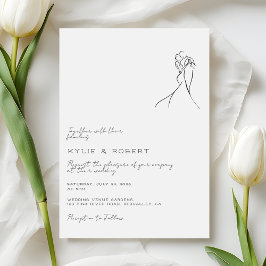 Together with their
families
KYLIE & ROBERT
Request the pleasure of your company
at their wedding
SATURDAY, JULY
WEDDING VENUE GARDENS
Reception to Follow